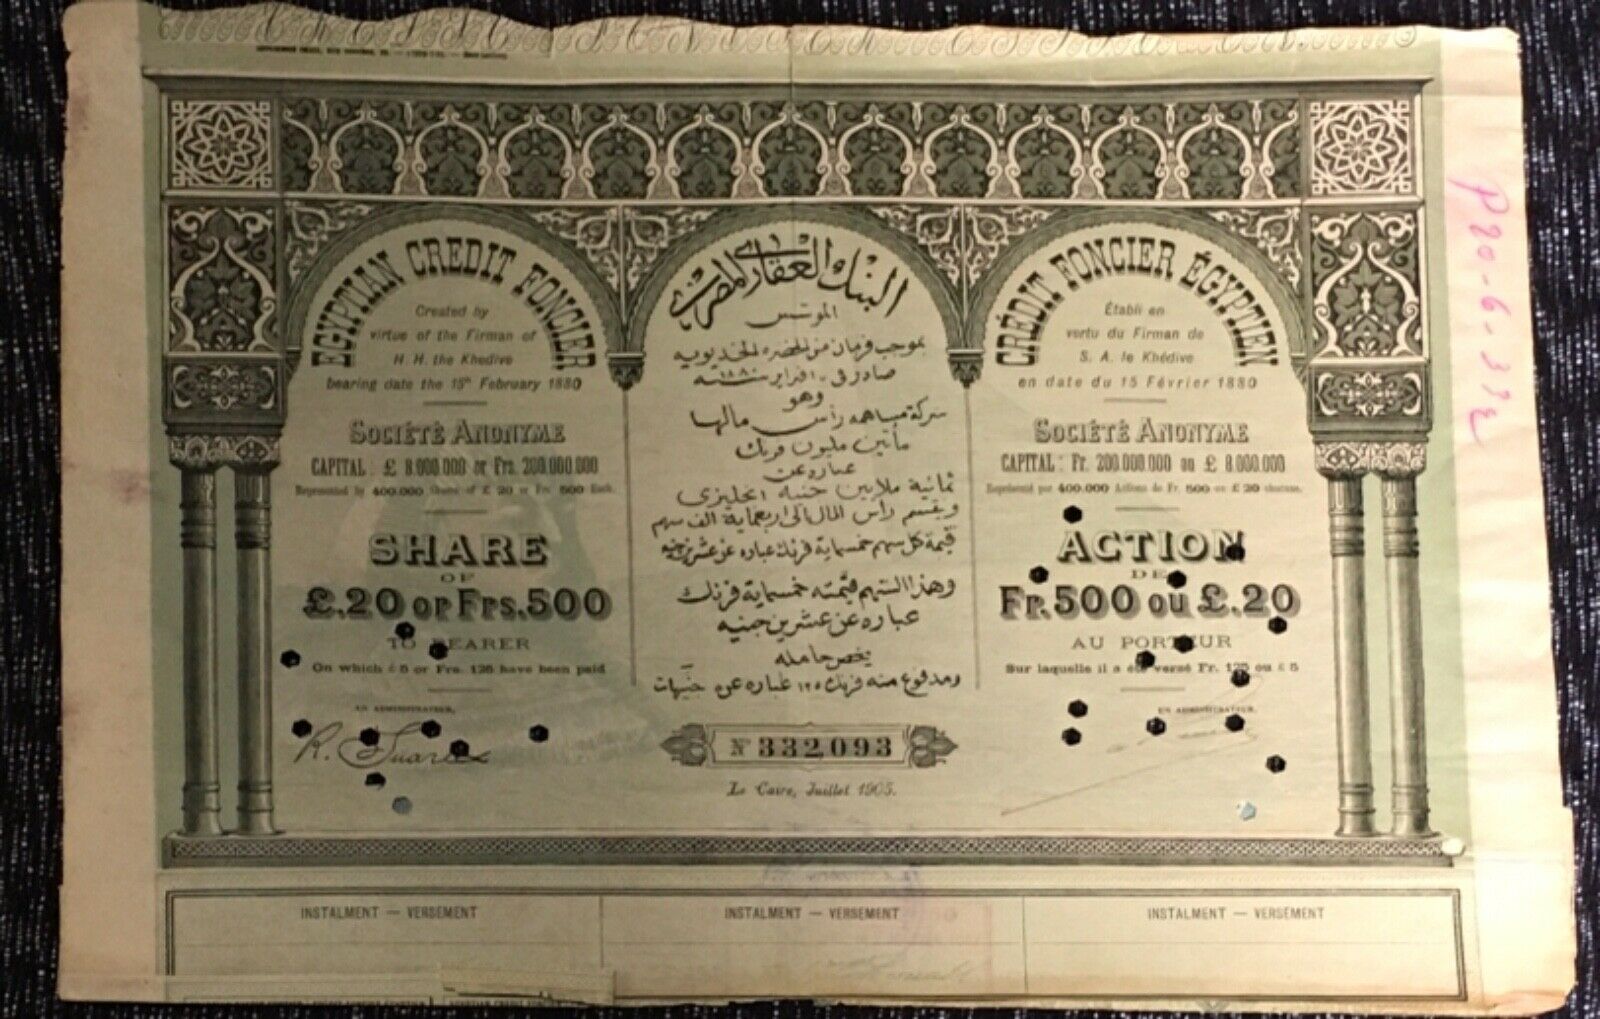 EGYPTIAN CREDIT FONCIER
Created by
virtue of the Firman of
H. H. the Khedive
bearing date the 15th February 1880
SOCIÉTÉ ANONYME
CAPITAL : £ 8.000.000 or Frs. 200.000.000
Represented by 400.000 Shares of £ 20 or Frs. 500 Each.
SHARE
OF
£.20 or Frs.500
TO BEARER
On which £ 5 or Frs. 125 have been paid
UN ADMINISTRATEUR,
R. Suares
البنك العقارى المصرى
المؤسس
بموجب فرمان من الحضرة الخديوية
صادر فى ١٥ فبراير سنة ١٨٨٠
وهو
شركة مساهمه رأس مالها
مأتين مليون فرنك
عباره عن
ثمانية ملايين جنيه انجليزى
وينقسم رأس المال الى اربعماية الف سهم
قيمة كل سهم خمسماية فرنك عباره عن عشرين جنيه
وهذا السهم قيمته خمسماية فرنك
عباره عن عشرين جنيه
يخص حامله
ومدفوع منه فرنك ١٢٥ عباره عن جنيهات
Nº 332,093
Le Caire, Juillet 1905.
CRÉDIT FONCIER ÉGYPTIEN
Établi en
vertu du Firman de
S. A. le Khédive
en date du 15 Février 1880
SOCIÉTÉ ANONYME
CAPITAL : Fr. 200.000.000 ou £ 8.000.000
Représenté par 400.000 Actions de Fr. 500 ou £ 20 chacune.
ACTION
DE
Fr. 500 ou £.20
AU PORTEUR
Sur laquelle il a été versé Fr. 125 ou £ 5
UN ADMINISTRATEUR,
INSTALMENT — VERSEMENT
INSTALMENT — VERSEMENT
INSTALMENT — VERSEMENT